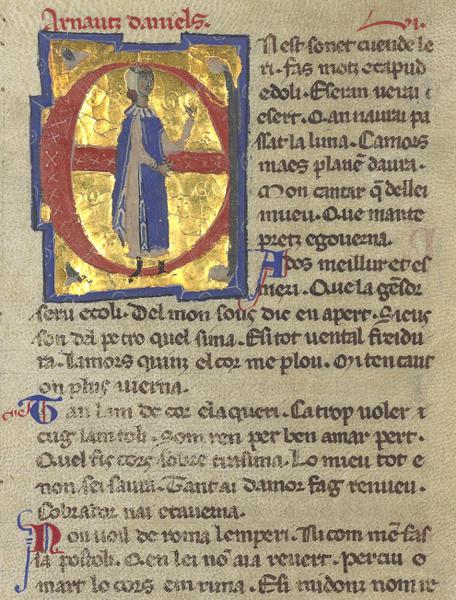 Arnautz daniels. .vi.
N est sonet cuende le
ri. fas motz e capud
e doli. E seran verai e
cert. Qan naurai pa
ssat la lima. Camors
maes plane daura.
Mon cantar q̄ dellei
mueu. Que mante
pretz e gouerna.
Ades meillur et es
meri. Que la gēser
seru e coli. Del mon so us dic en apert. Sieus
son del pe tro quel sima. E si tot vental freidu
ra. Lamors quinz el cor me plou. Mi ten caut
on plus iuerna.
Tan lam de cor e la queri. Ca trop voler
cug lam toli. Som ren per ben amar pert.
Quel sieus cors sobre trasima. Lo mieu tot e
non seisaura. Tant ai damor fag renueu.
Cobrador nai e tauerna.
Non voil de roma lemperi. Ni com mē fas
sa postoli. Qen lei nō aia reuert. Per cui
mart lo cors em rima. E si midonz nom re